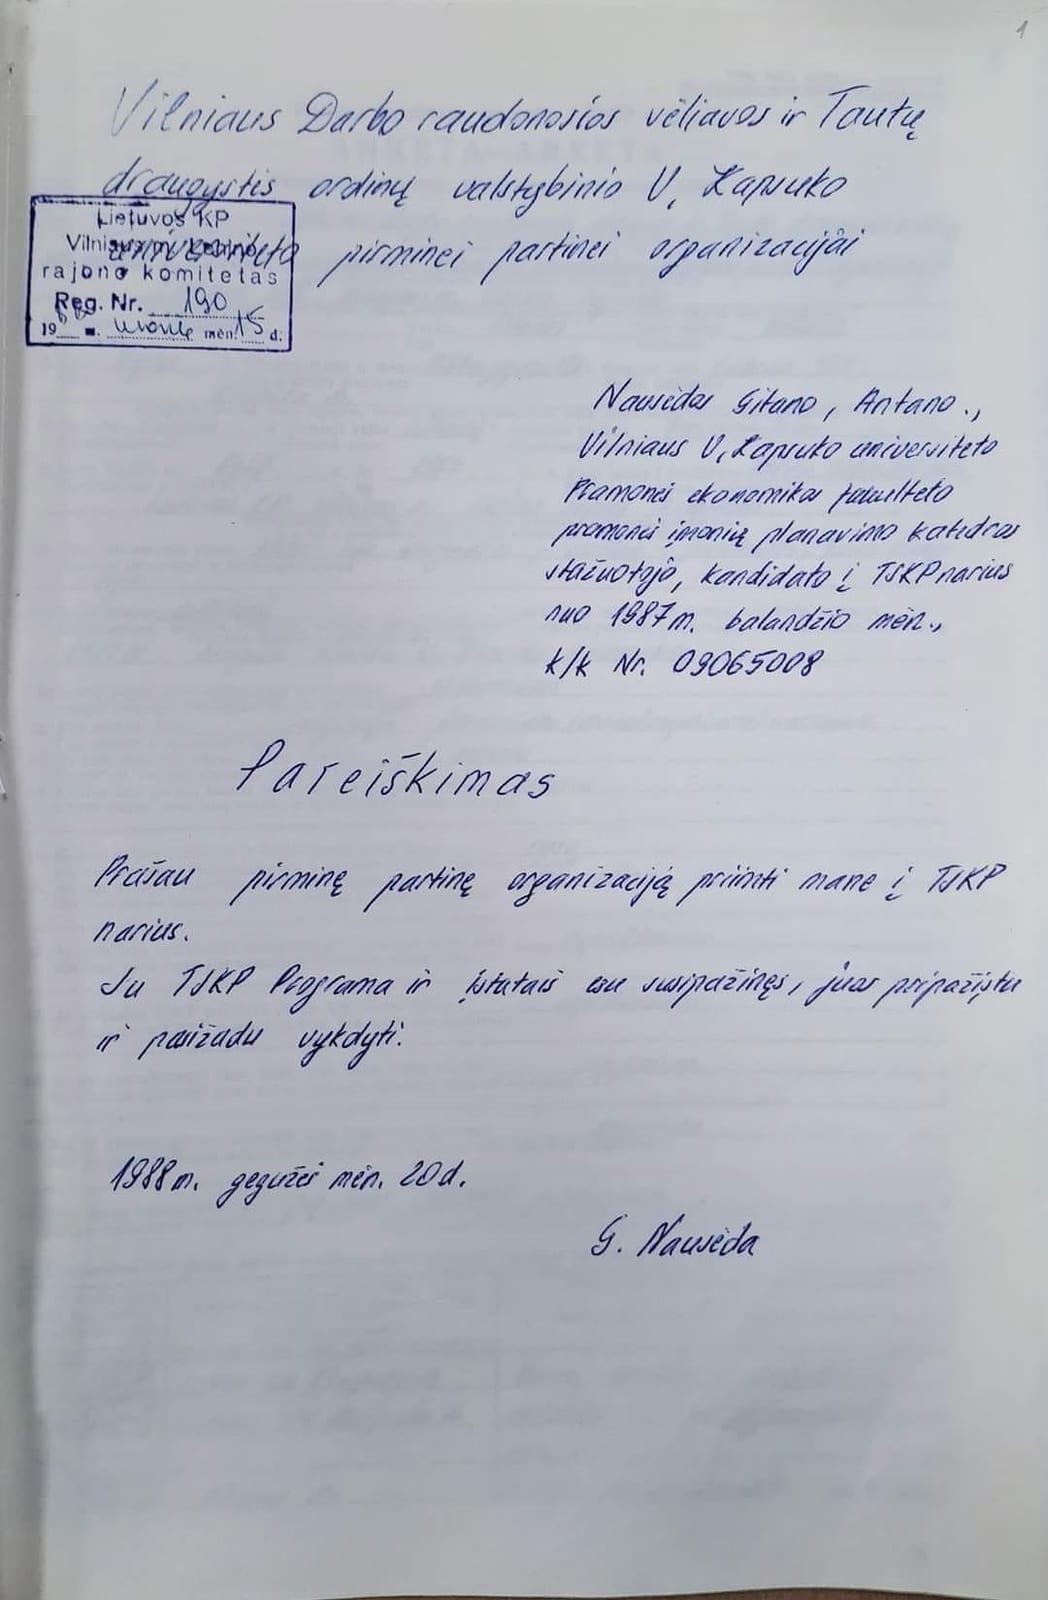 1
Vilniaus Darbo raudonosios vėliavos ir Tautų
draugystės ordinų valstybinio V. Kapsuko
universiteto pirminei partinei organizacijai
Lietuvos KP
Vilniaus m. Lenino
rajono komitetas
Reg. Nr. 190
19 m. mėn. 15 d.
Nausėdos Gitano, Antano.,
Vilniaus V. Kapsuko universiteto
Pramonės ekonomikos fakulteto
pramonės įmonių planavimo katedros
stažuotojo, kandidato į TSKP narius
nuo 1987 m. balandžio mėn.,
k/k Nr. 09065008
Pareiškimas
Prašau pirminę partinę organizaciją priimti mane į TSKP
narius.
Su TSKP Programa ir įstatais esu susipažinęs, juos pripažįstu
ir pasižadu vykdyti.
1988 m. gegužės mėn. 20 d.
G. Nausėda